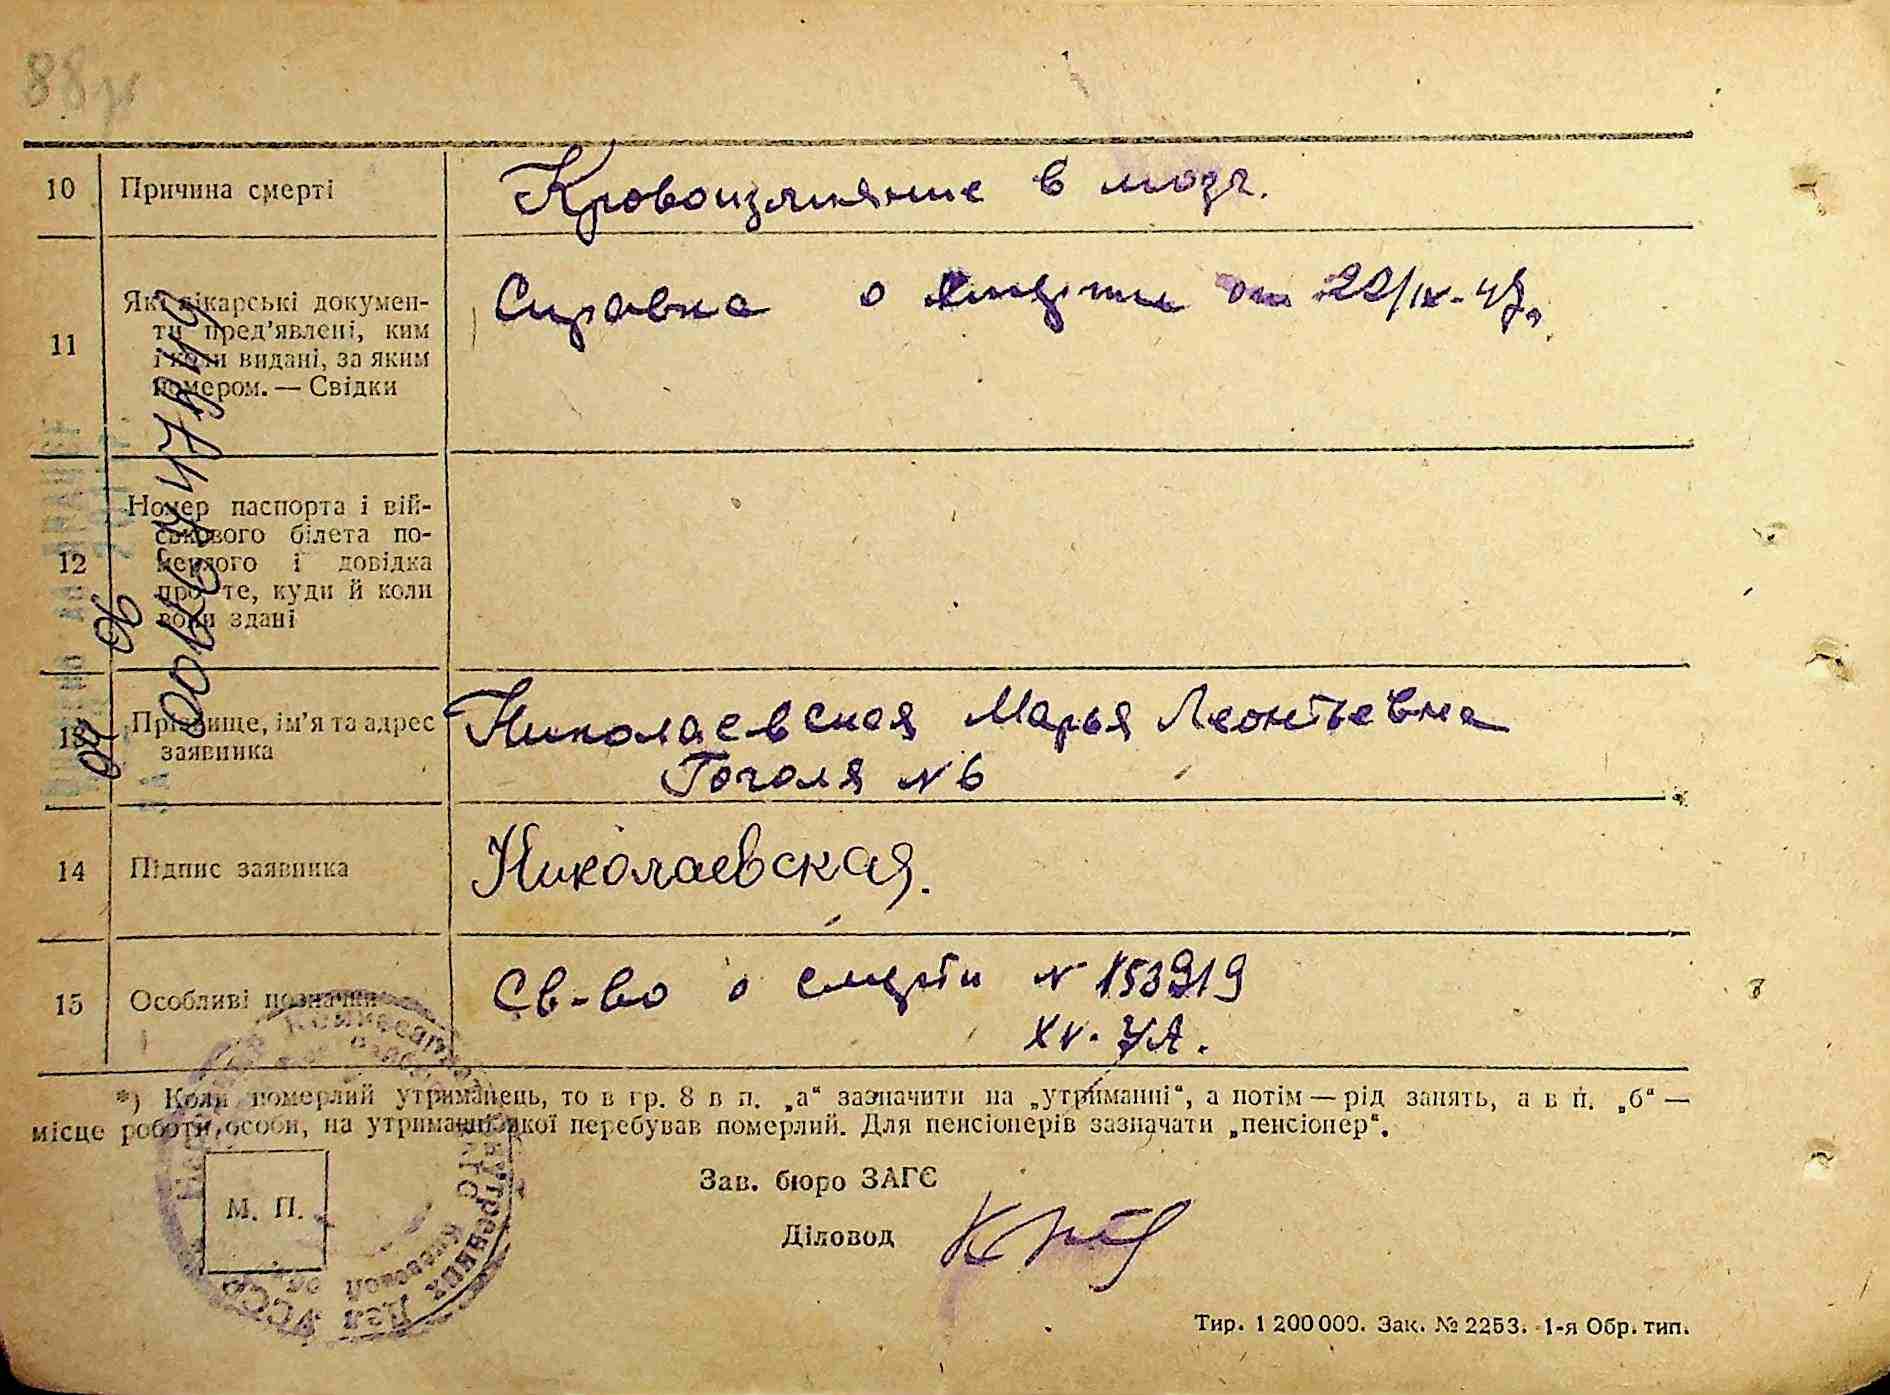 10 Причина смерті Кровоизлияние в мозг.
11 Які лікарські докумен-
ти пред'явлені, ким
і коли видані, за яким
номером. — Свідки
Справка о смерти от 22/IX-47.
12 Номер паспорта і вій-
ськового білета по-
мерлого і довідка
про те, куди й коли
вони здані
13 Прізвище, ім'я та адрес
заявника
Николаевская Марья Леонтьевна
Гоголя № 6
14 Підпис заявника Николаевская.
15 Особливі позначки Св-во о смерти № 153919
XV. УА.
*) Коли померлий утриманець, то в гр. 8 в п. „а“ зазначити на „утриманні“, а потім — рід занять, а в п. „б“ —
місце роботи особи, на утриманні якої перебував померлий. Для пенсіонерів зазначати „пенсіонер“.
Зав. бюро ЗАГС
М. П.
Діловод
Тир. 1 200 000. Зак. № 2253. 1-я Обр. тип.